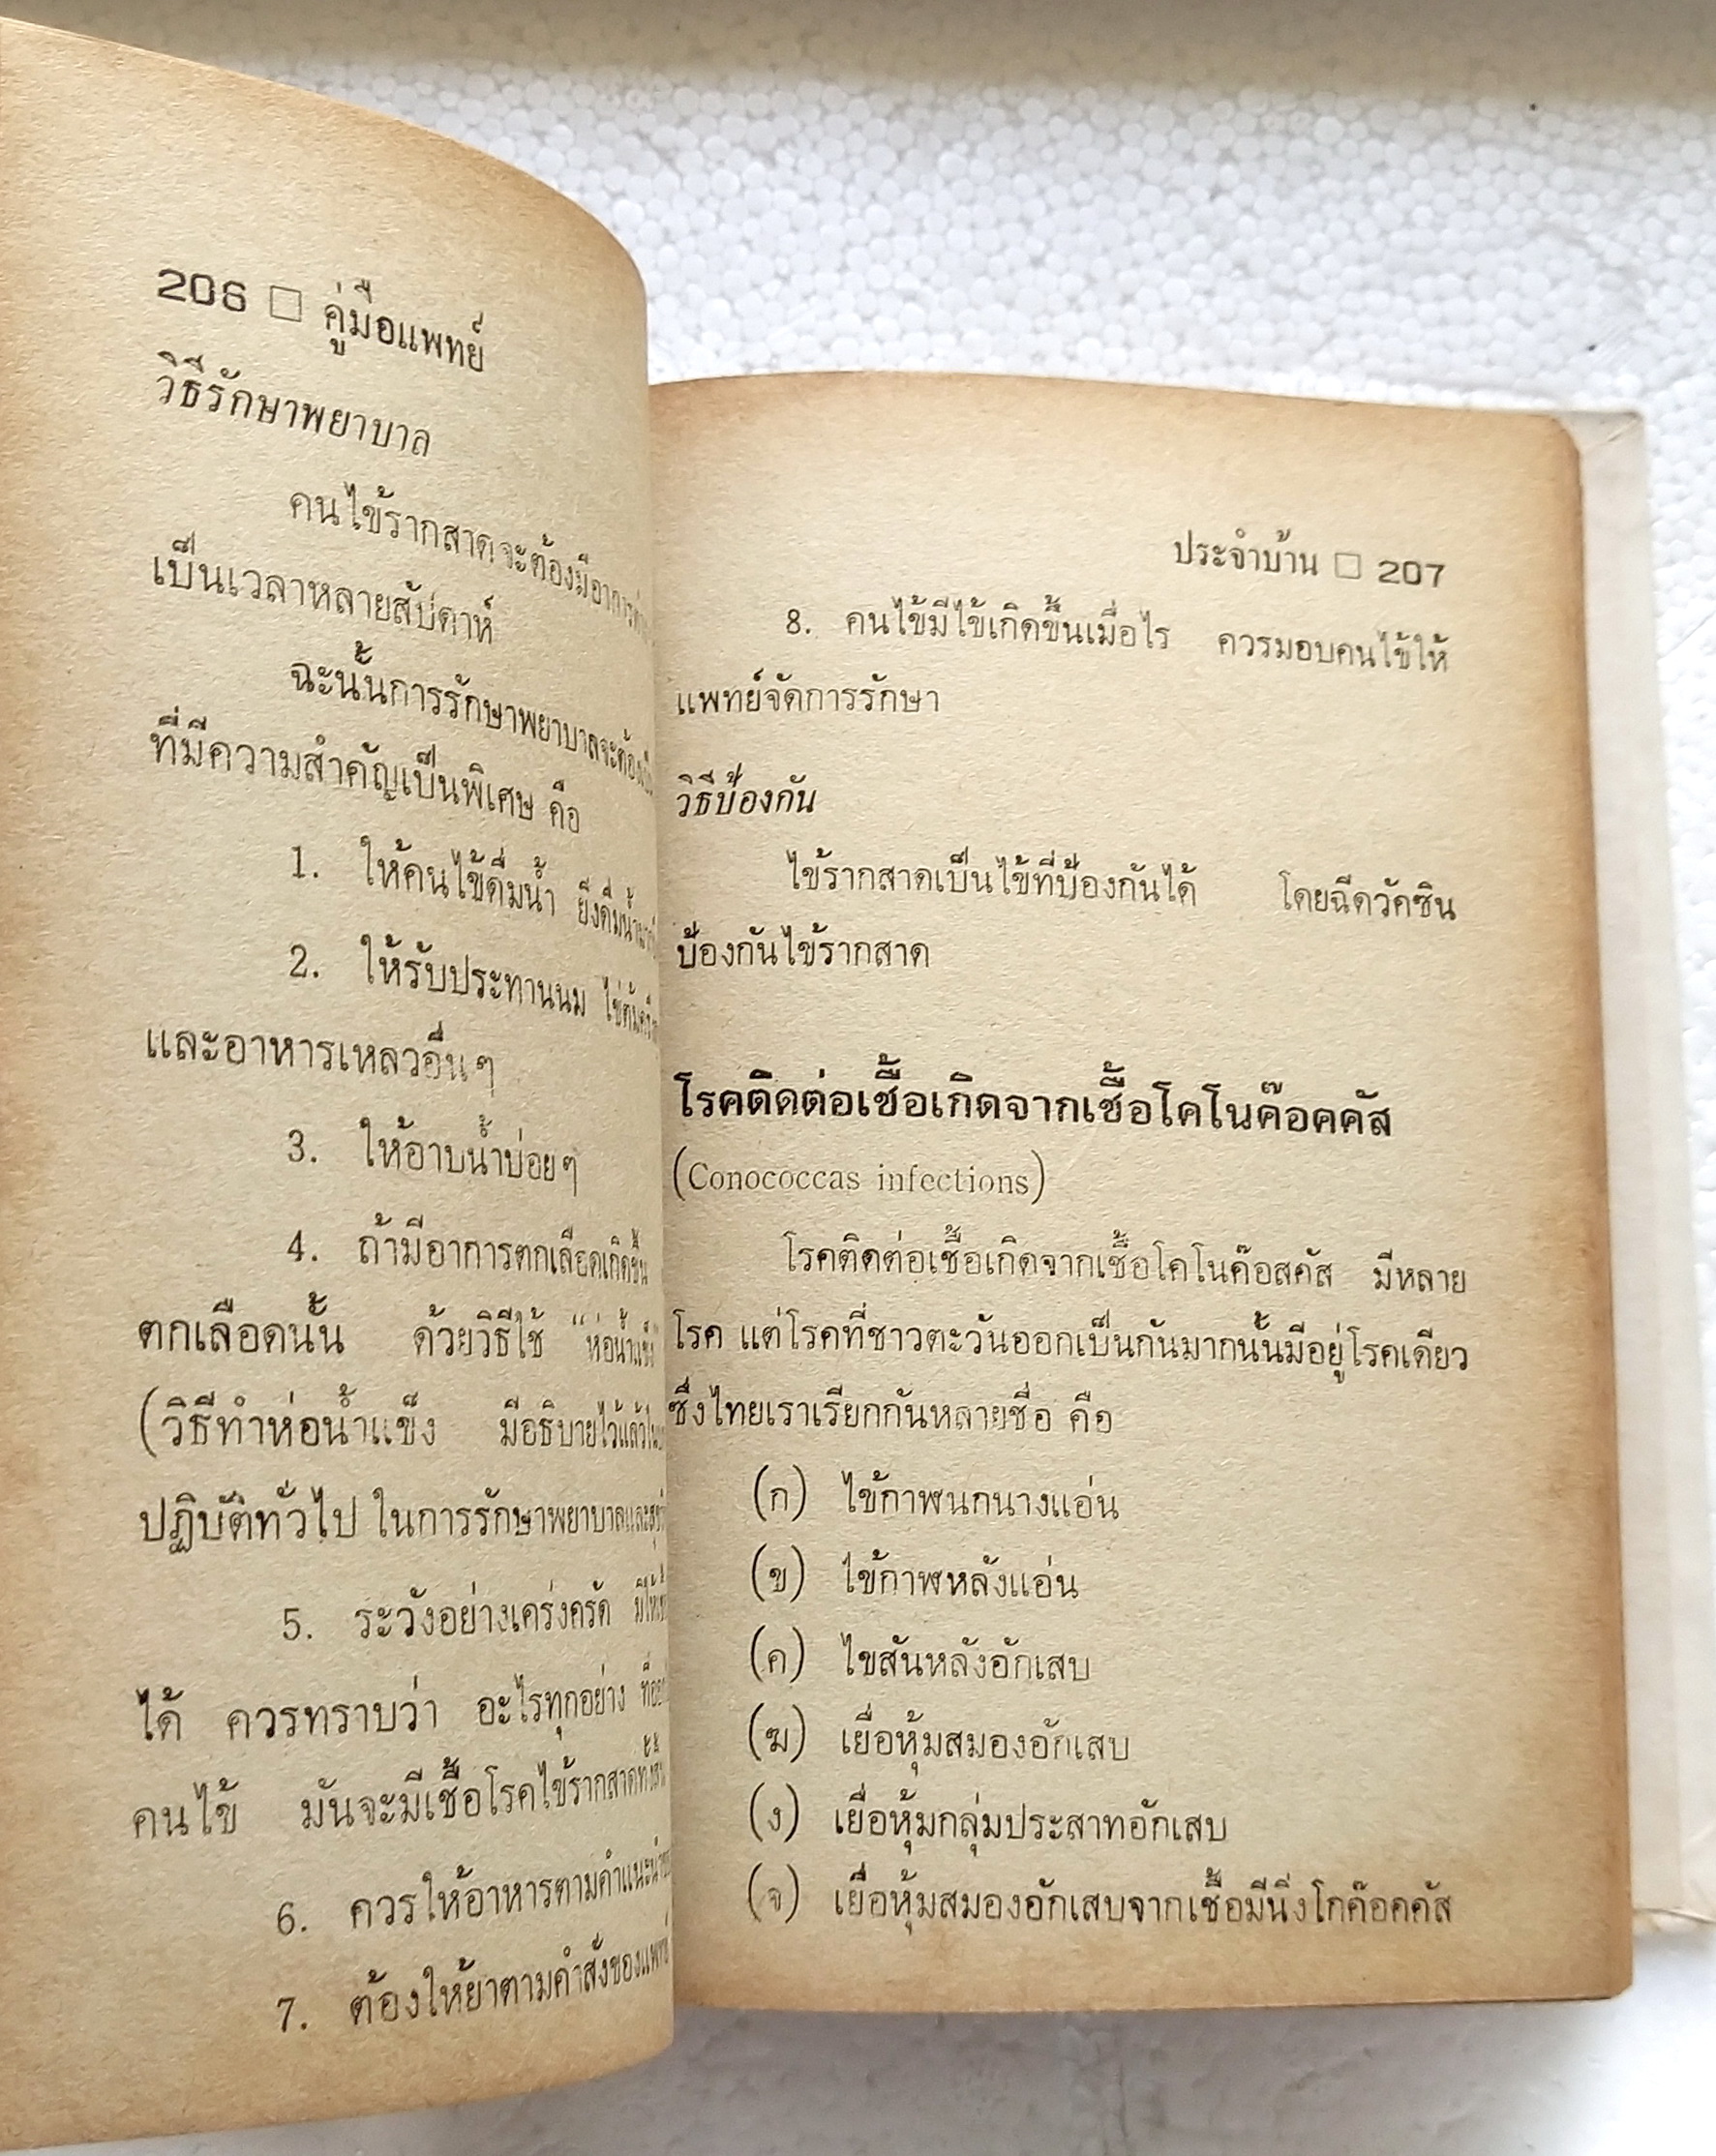 206 □ คู่มือแพทย์
วิธีรักษาพยาบาล
คนไข้รากสาดจะต้องมีอาการ
เป็นเวลาหลายสัปดาห์
ฉะนั้นการรักษาพยาบาลจะต้อง
ที่มีความสำคัญเป็นพิเศษ คือ
1. ให้คนไข้ดื่มน้ำ ยิ่งดื่มน้ำ
2. ให้รับประทานนม
และอาหารเหลวอื่นๆ
3. ให้อาบน้ำบ่อยๆ
4. ถ้ามีอาการตกเลือดเกิดขึ้น
ตกเลือดนั้น ด้วยวิธีใช้ “ห่อน้ำแข็ง”
(วิธีทำห่อน้ำแข็ง มีอธิบายไว้แล้ว
ปฏิบัติทั่วไป ในการรักษาพยาบาลและ
5. ระวังอย่างเคร่งครัด มิให้
ได้ ควรทราบว่า อะไรทุกอย่าง
คนไข้ มันจะมีเชื้อโรคไข้รากสาด
6. ควรให้อาหารตามคำแนะนำ
7. ต้องให้ยาตามคำสั่งของแพทย์
ประจำบ้าน □ 207
8. คนไข้มีไข้เกิดขึ้นเมื่อไร ควรมอบคนไข้ให้
แพทย์จัดการรักษา
วิธีป้องกัน
ไข้รากสาดเป็นไข้ที่ป้องกันได้ โดยฉีดวัคซีน
ป้องกันไข้รากสาด
โรคติดต่อเชื้อเกิดจากเชื้อโคโนค๊อคคัส
(Conococcas infections)
โรคติดต่อเชื้อเกิดจากเชื้อโคโนค๊อสคัส มีหลาย
โรค แต่โรคที่ชาวตะวันออกเป็นกันมากนั้นมีอยู่โรคเดียว
ซึ่งไทยเราเรียกกันหลายชื่อ คือ
(ก) ไข้กาฬนกนางแอ่น
(ข) ไข้กาฬหลังแอ่น
(ค) ไขสันหลังอักเสบ
(ฆ) เยื่อหุ้มสมองอักเสบ
(ง) เยื่อหุ้มกลุ่มประสาทอักเสบ
(จ) เยื่อหุ้มสมองอักเสบจากเชื้อมีนิ่งโกค๊อคคัส